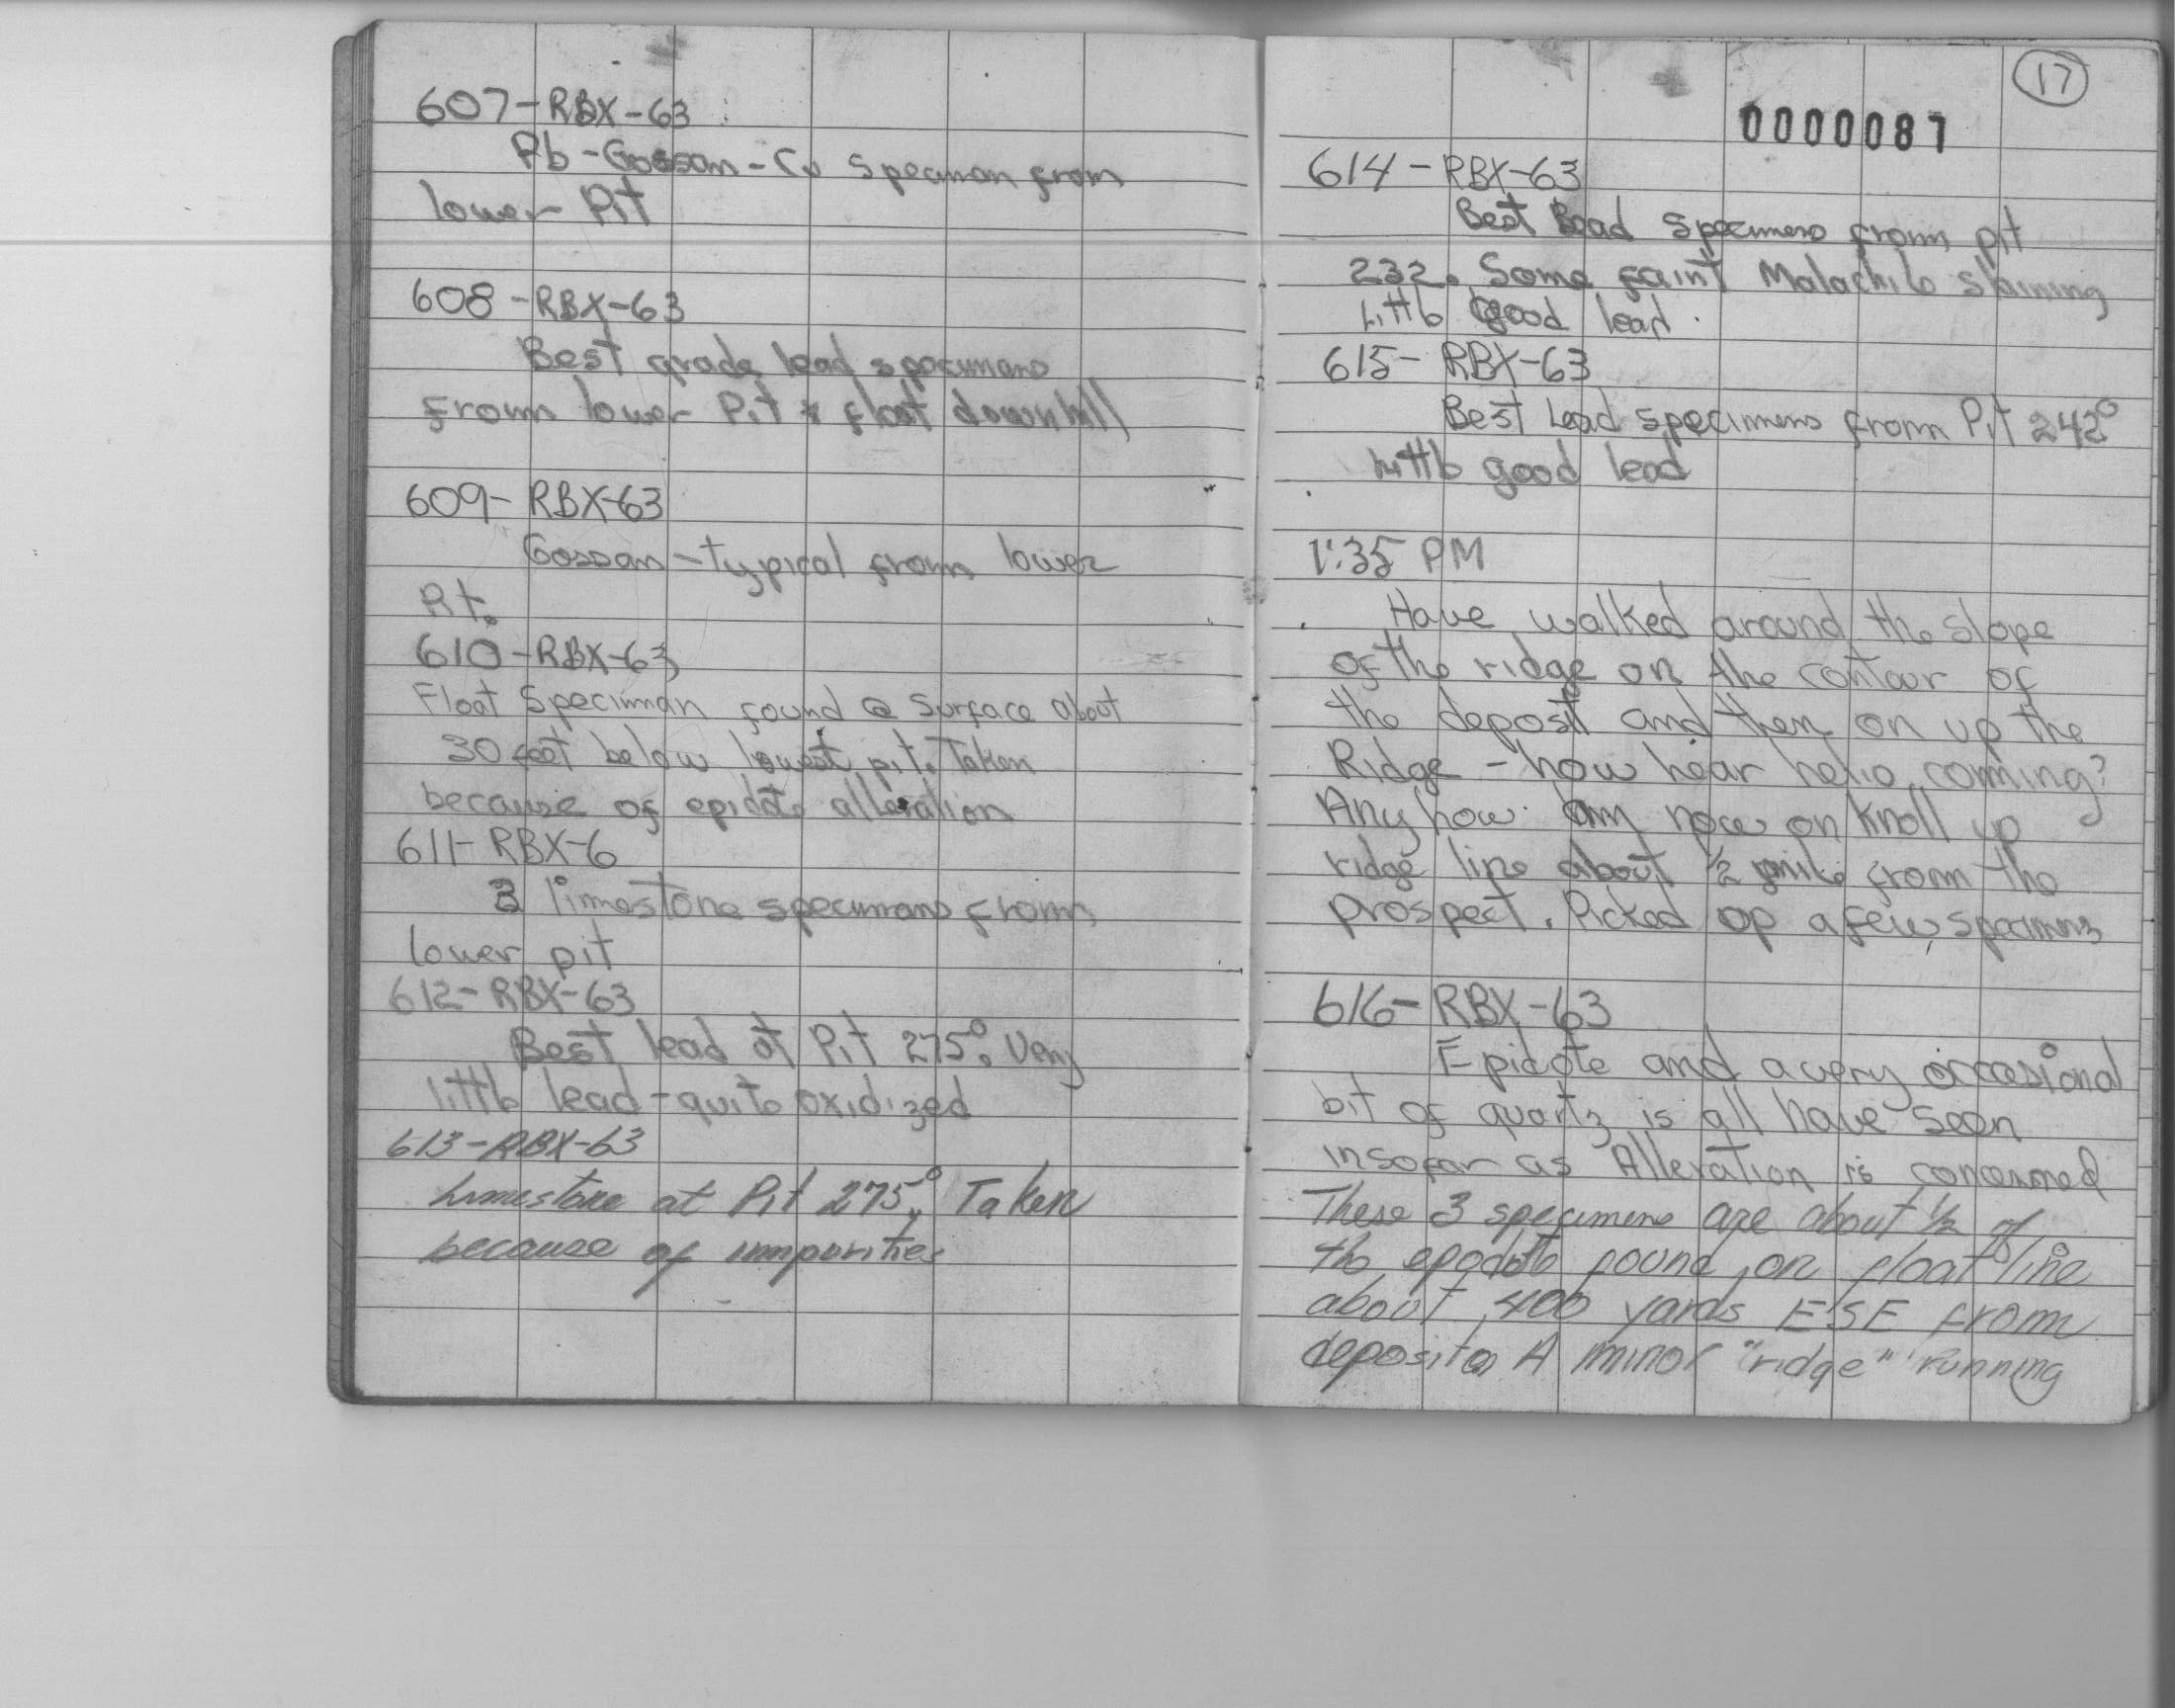 607-RBX-63
Pb-Gossan-Cu Speciman from
lower Pit
608-RBX-63
Best grade lead specimens
From lower Pit & float downhill
609-RBX-63
Gossan-typical from lower
Pit.
610-RBX-63
Float Speciman found @ surface about
30 feet below lowest pit. Taken
because of epidote alteration
611-RBX-6
3 limestone specimans from
lower pit
612-RBX-63
Best lead at Pit 275°. Very
little lead-quite oxidized
613-RBX-63
Limestone at Pit 275°. Taken
because of impurities
17
0000087
614-RBX-63
Best Lead specimens from pit
232. Some faint Malachite staining
Little good lead.
615-RBX-63
Best Lead specimens from Pit 242°
Little good lead
1:35 PM
Have walked around the slope
of the ridge on the contour of
the deposit and then on up the
Ridge - how hear helio coming?
Anyhow am now on knoll up
ridge line about ½ mile from the
prospect. Picked up a few specimens
616-RBX-63
Epidote and a very occasional
bit of quartz is all have seen
insofar as Alteration is concerned
These 3 specimens are about ½ of
the epodote found on float line
about 400 yards ESE from
deposit. A minor "ridge" running